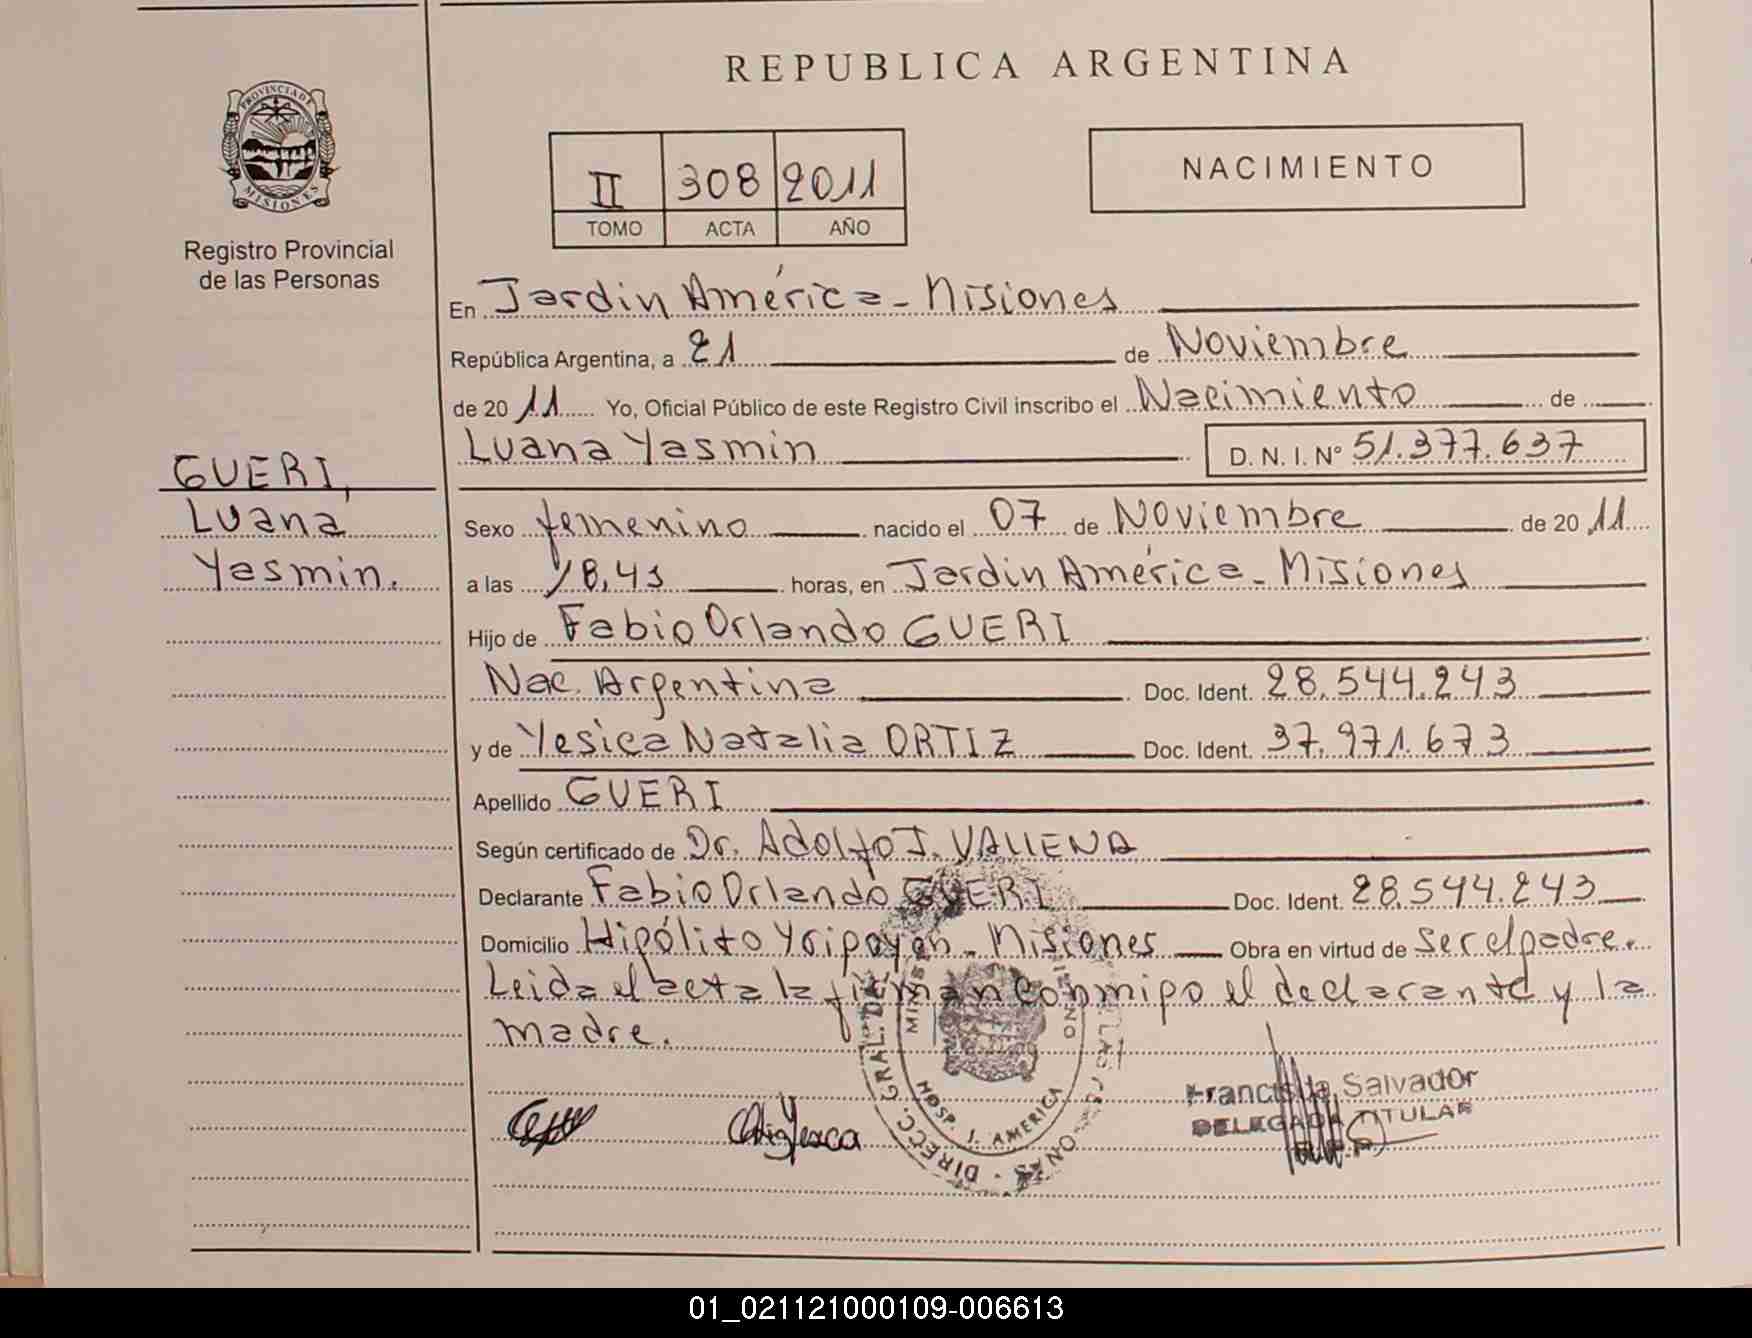 REPUBLICA ARGENTINA
PROVINCIA DE
MISIONES
Registro Provincial
de las Personas
II 308 2011
TOMO ACTA AÑO
NACIMIENTO
En Jardin América - Misiones
República Argentina, a 21 de Noviembre
de 20 11 Yo, Oficial Público de este Registro Civil inscribo el Nacimiento de
Luana Yasmin D. N. I. N° 51.377.637
GUERI,
Luana
Yasmin.
Sexo femenino nacido el 07 de Noviembre de 20 11
a las 18,43 horas, en Jardin América - Misiones
Hijo de Fabio Orlando GUERI
Nac. Argentina Doc. Ident. 28.544.243
y de Yesica Natalia ORTIZ Doc. Ident. 37.971.673
Apellido GUERI
Según certificado de Dr. Adolfo J. VALLENA
Declarante Fabio Orlando GUERI Doc. Ident. 28.544.243
Domicilio Hipólito Yrigoyen - Misiones Obra en virtud de ser el padre.
Leida el acta la firman conmigo el declarante y la
madre.
DIRECC. GRAL. DE
HOSP. J. AMERICA
Salvador
DELEGADA TITULAR
01_021121000109-006613